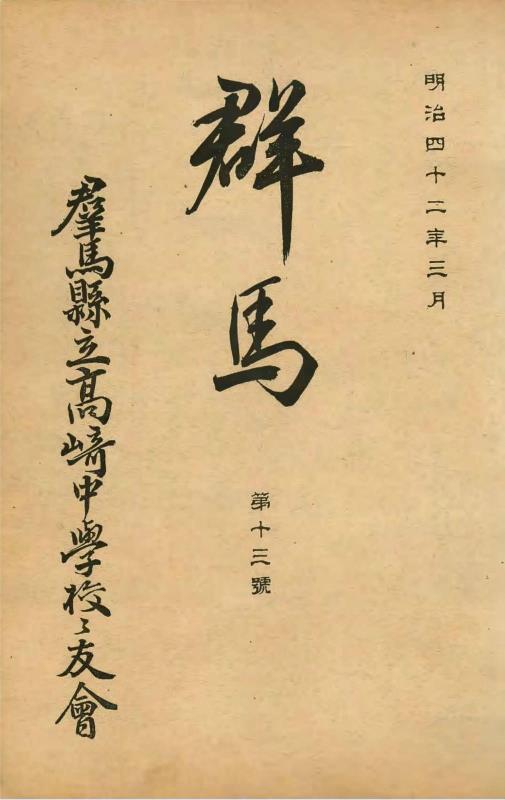 明治四十二年三月
群馬
第十三號
羣馬縣立高﨑中學校〻友會